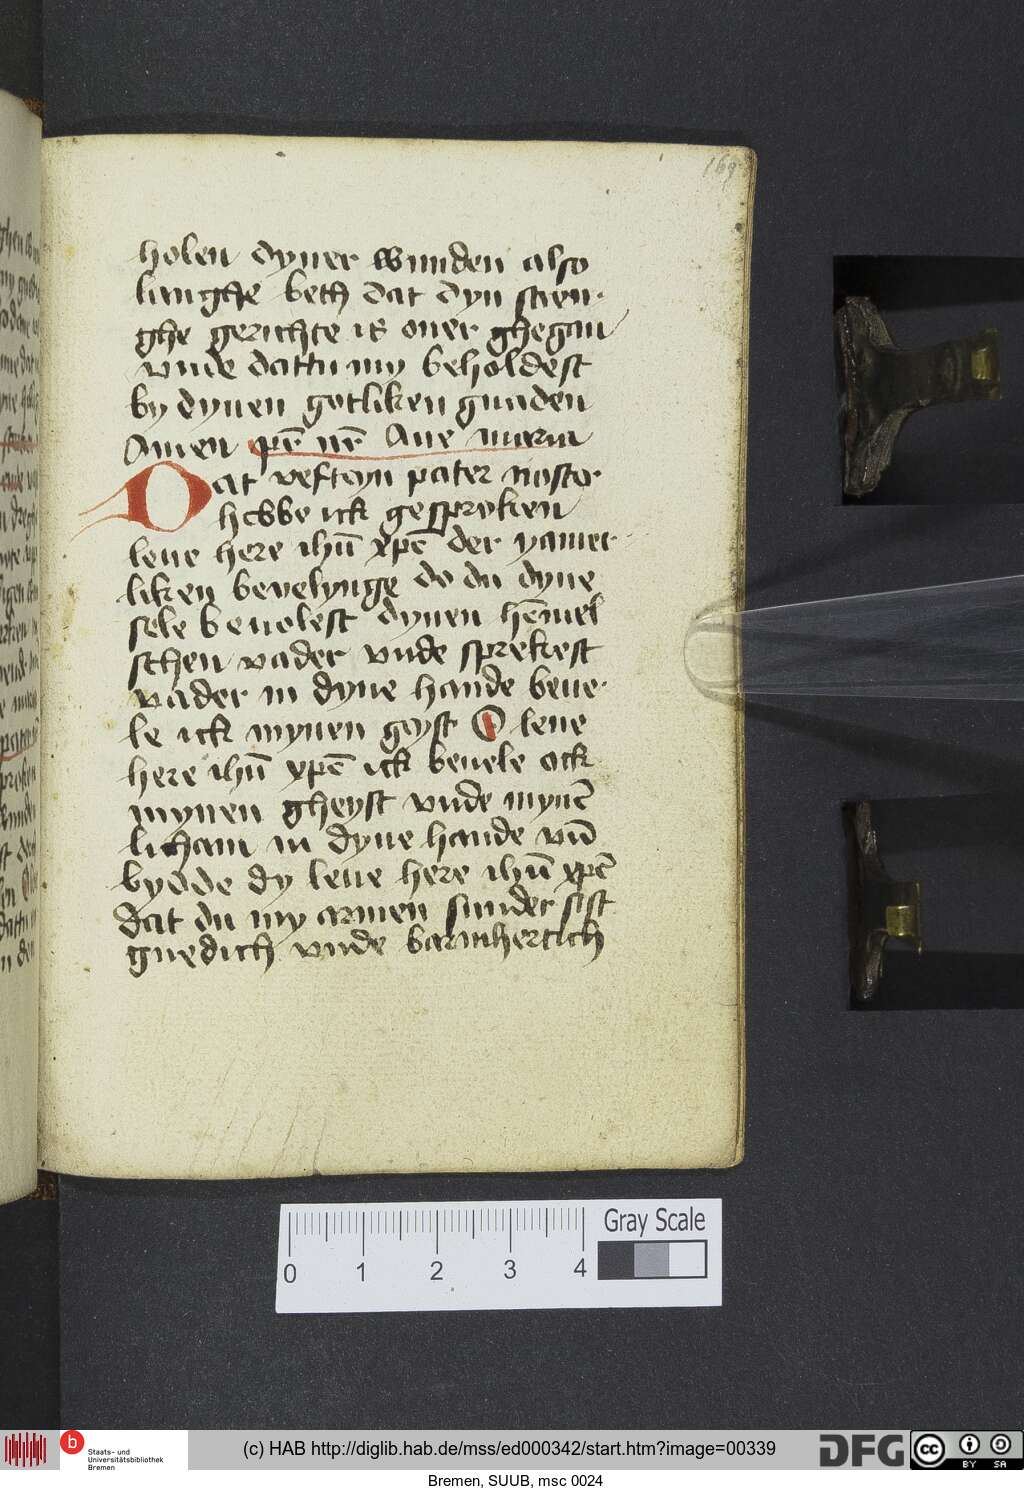 169
holen dyner wunden also
langhe beth dat dyn stren-
ghe gerichte is ouer ghegan
vnde dattu my beholdest
by dynen gotliken gnaden
Amen pr̄ nr̄ Aue maria
Dat vefteyn pater noster
hebbe ick gespreken
leue here ihū xp̄e der yamer-
liken bevelynge do du dyne
sele beuolest dynen hēmel
schen vader vnde sprekest
vader in dyne hande beue-
le ick mynen geyst O leue
here ihū xp̄e ick beuele ock
mynen gheyst vnde mynē
licham in dyne hande vn̄
bydde dy leue here ihū xp̄e
dat du my armen sunder sist
gnedich vnde barmhertich
0 1 2 3 4
Gray Scale
Staats- und
Universitätsbibliothek
Bremen
(c) HAB http://diglib.hab.de/mss/ed000342/start.htm?image=00339
DFG
cc BY SA
Bremen, SUUB, msc 0024